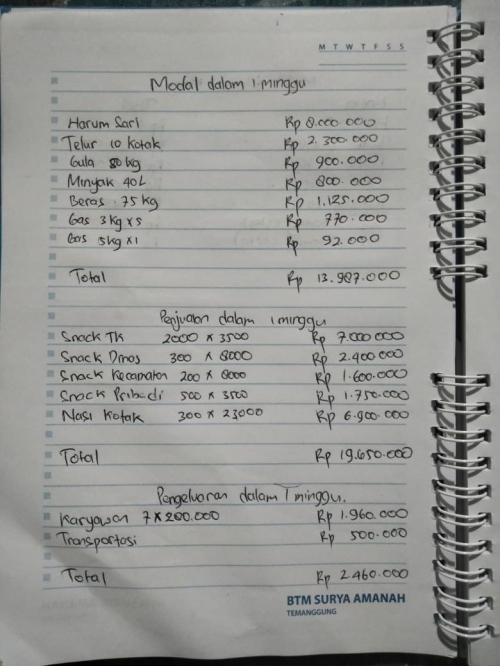 M T W T F S S
Modal dalam 1 minggu
Harum Sari Rp 8.000.000
Telur 10 kotak Rp 2.300.000
Gula 80 kg Rp 900.000
Minyak 40L Rp 800.000
Beras 75 kg Rp 1.125.000
Gas 3 kg x 5 Rp 770.000
Gas 5 kg x 1 Rp 92.000
Total Rp 13.987.000
Penjualan dalam 1 minggu
Snack TK 2000 x 3500 Rp 7.000.000
Snack Dinas 300 x 8000 Rp 2.400.000
Snack Kecamatan 200 x 8000 Rp 1.600.000
Snack Pribadi 500 x 3500 Rp 1.750.000
Nasi Kotak 300 x 23000 Rp 6.900.000
Total Rp 19.650.000
Pengeluaran dalam 1 minggu.
Karyawan 7 x 280.000 Rp 1.960.000
Transportasi Rp 500.000
Total Rp 2.460.000
BTM SURYA AMANAH
TEMANGGUNG